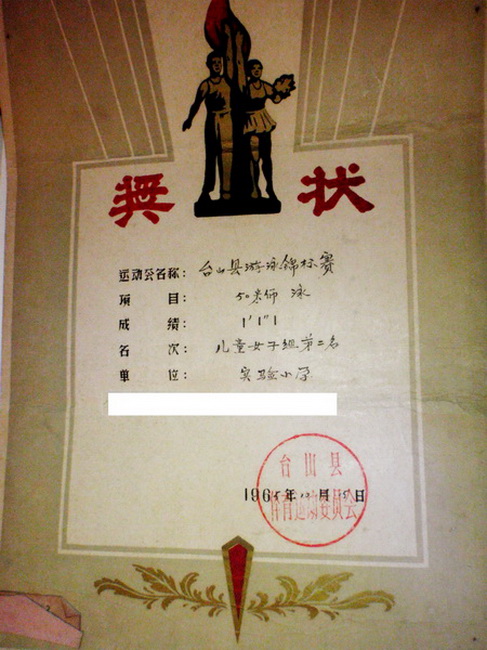 奖状
运动会名称：台山县游泳锦标赛
项目：50米 泳
成绩：1'1"1
名次：儿童女子组第二名
单位：实验小学
台山县
体育运动委员会
196 年 月 日